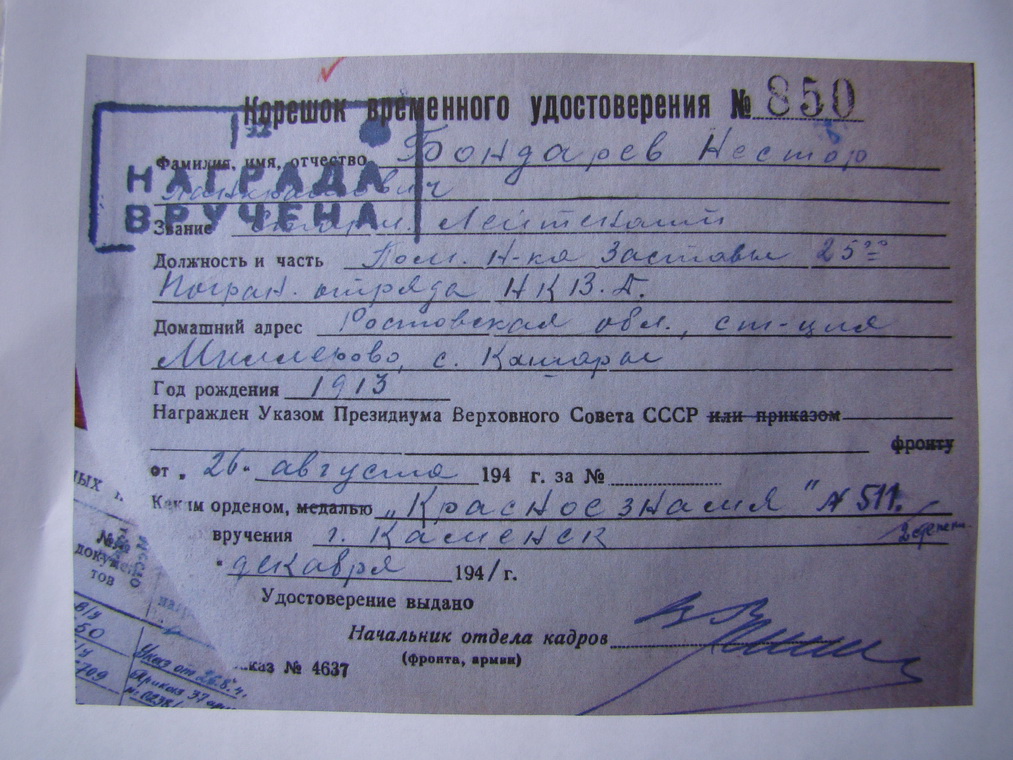 Корешок временного удостоверения № 850
Фамилия, имя, отчество Бондарев Нестор
НАГРАДА
ВРУЧЕНА
Звание Лейтенант
Должность и часть Пом. Н-ка Заставы 25го
Погран. отряда НКВД.
Домашний адрес Ростовская обл., ст-ция
Миллерово, с. Кашары
Год рождения 1913
Награжден Указом Президиума Верховного Совета СССР или приказом
фронту
от „ 26 " августа 194 г. за №
Каким орденом, медалью „Красное знамя" № 511.
2 степени
вручения г. Каменск
" декабря 194/г.
Удостоверение выдано
Начальник отдела кадров
(фронта, армии)
каз № 4637
ных
№№
докумен
тов
в/у
50
/у
709
Указ от 26.8.4
Приказ 37 арм